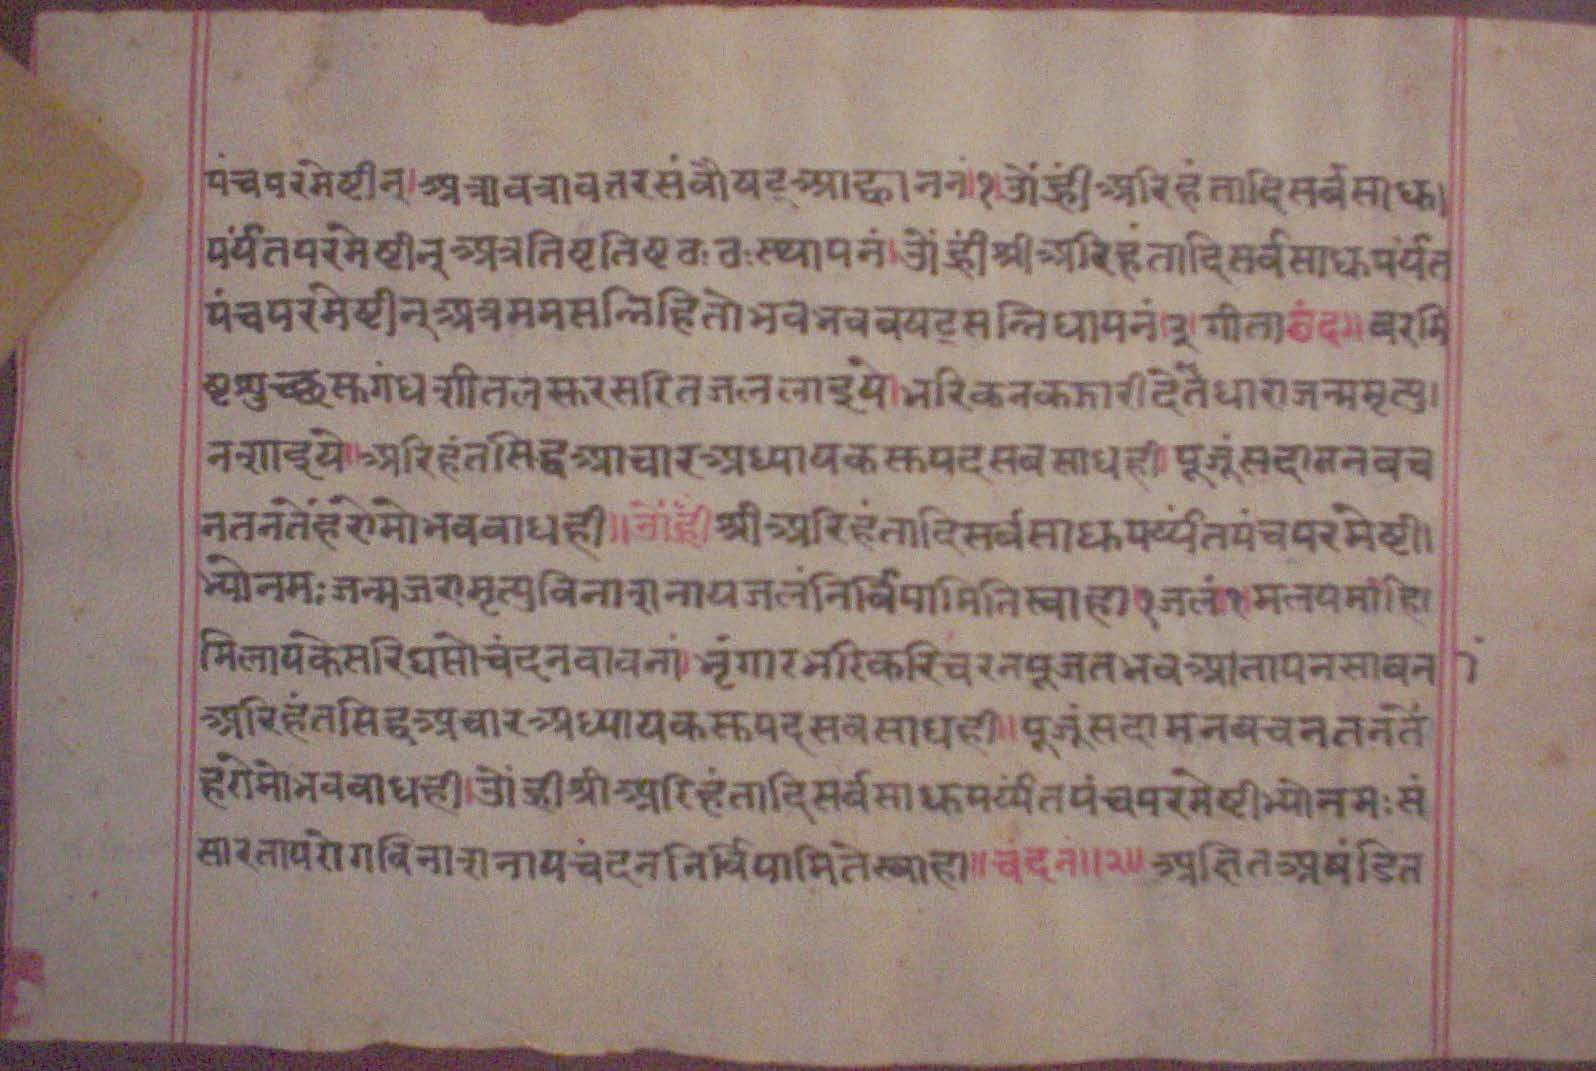 पंचपरमेष्टीन्।अत्रावत्रावतरसंवौषट्आह्वाननं।१।ओंह्रीं अरिहंतादिसर्वसाधु।
पर्यंतपरमेष्टीन् अत्रतिष्टतिष्टठःठःस्थापनं।ओंह्रीं श्रीअरिहंतादिसर्वसाधुपर्यंत
पंचपरमेष्टीन् अत्रममसन्निहितोभवभववषट्सन्निधापनं।३।गीताछंद॥वरमि
ष्टशुच्छसुगंधशीतलसुरसरितजललाइये।भरिकनकझारीदेतैधाराजन्ममृत्यु।
नशाइये॥अरिहंतसिद्धआचारअध्यायकसुपदसबसाधही।पूजूंसदामनबच
नतनतेंहरोमोभवबाधही॥ओंह्रीं श्रीअरिहंतादिसर्वसाधुपर्य्यंतपंचपरमेष्टी।
भ्योनमःजन्मजरामृत्युविनाशनायजलंनिर्विपामितिस्वाहा१जलं१मलयमांहि।
मिलायकेसरिघसोचंदनबावनां।भृंगारभरिकरिचरनपूजतभवआतापनसावनां
अरिहंतसिद्धअचारअध्यायकसुपदसबसाधही॥पूजूंसदामनबचनतनतें
हरोमोभवबाधही।ओंह्रीं श्रीअरिहंतादिसर्वसाधुपर्य्यंतपंचपरमेष्टीभ्योनमःसं
सारतापरोगविनाशनायचंदननिर्विपामितेस्वाहा॥चंदनं॥२॥अक्षितअषंडित